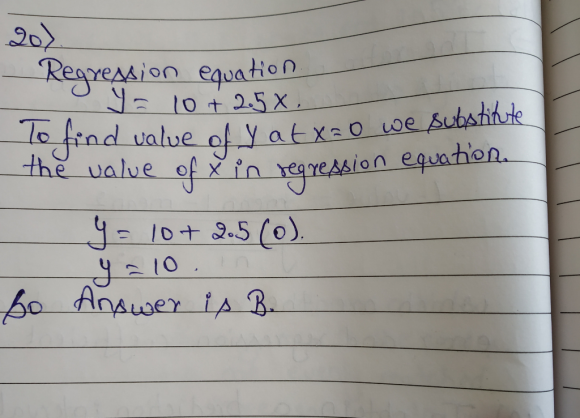 20)
Regression equation
y = 10 + 2.5x.
To find value of y at x=0 we substitute
the value of x in regression equation.
y = 10 + 2.5 (0).
y = 10 .
So Answer is B.